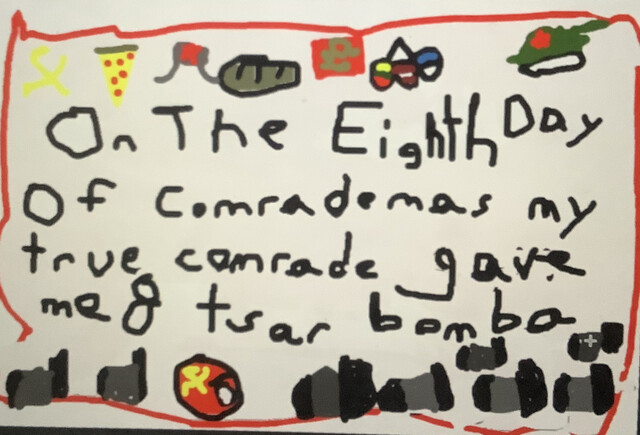 On The Eighth Day
Of Comrademas my
true comrade gave
me 8 tsar bomba